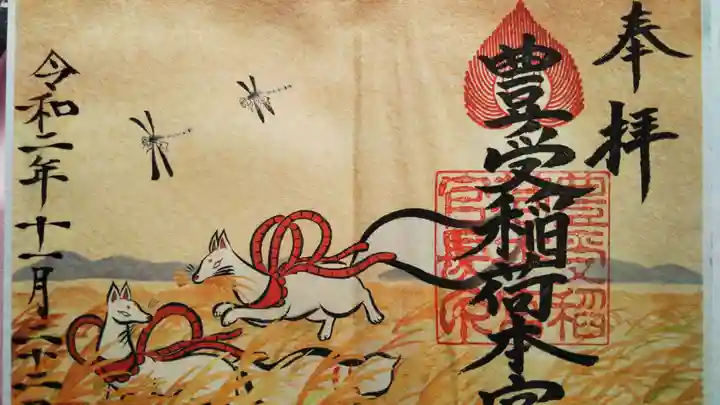 奉拝
豊受稲荷本宮
令和二年十一月二十二